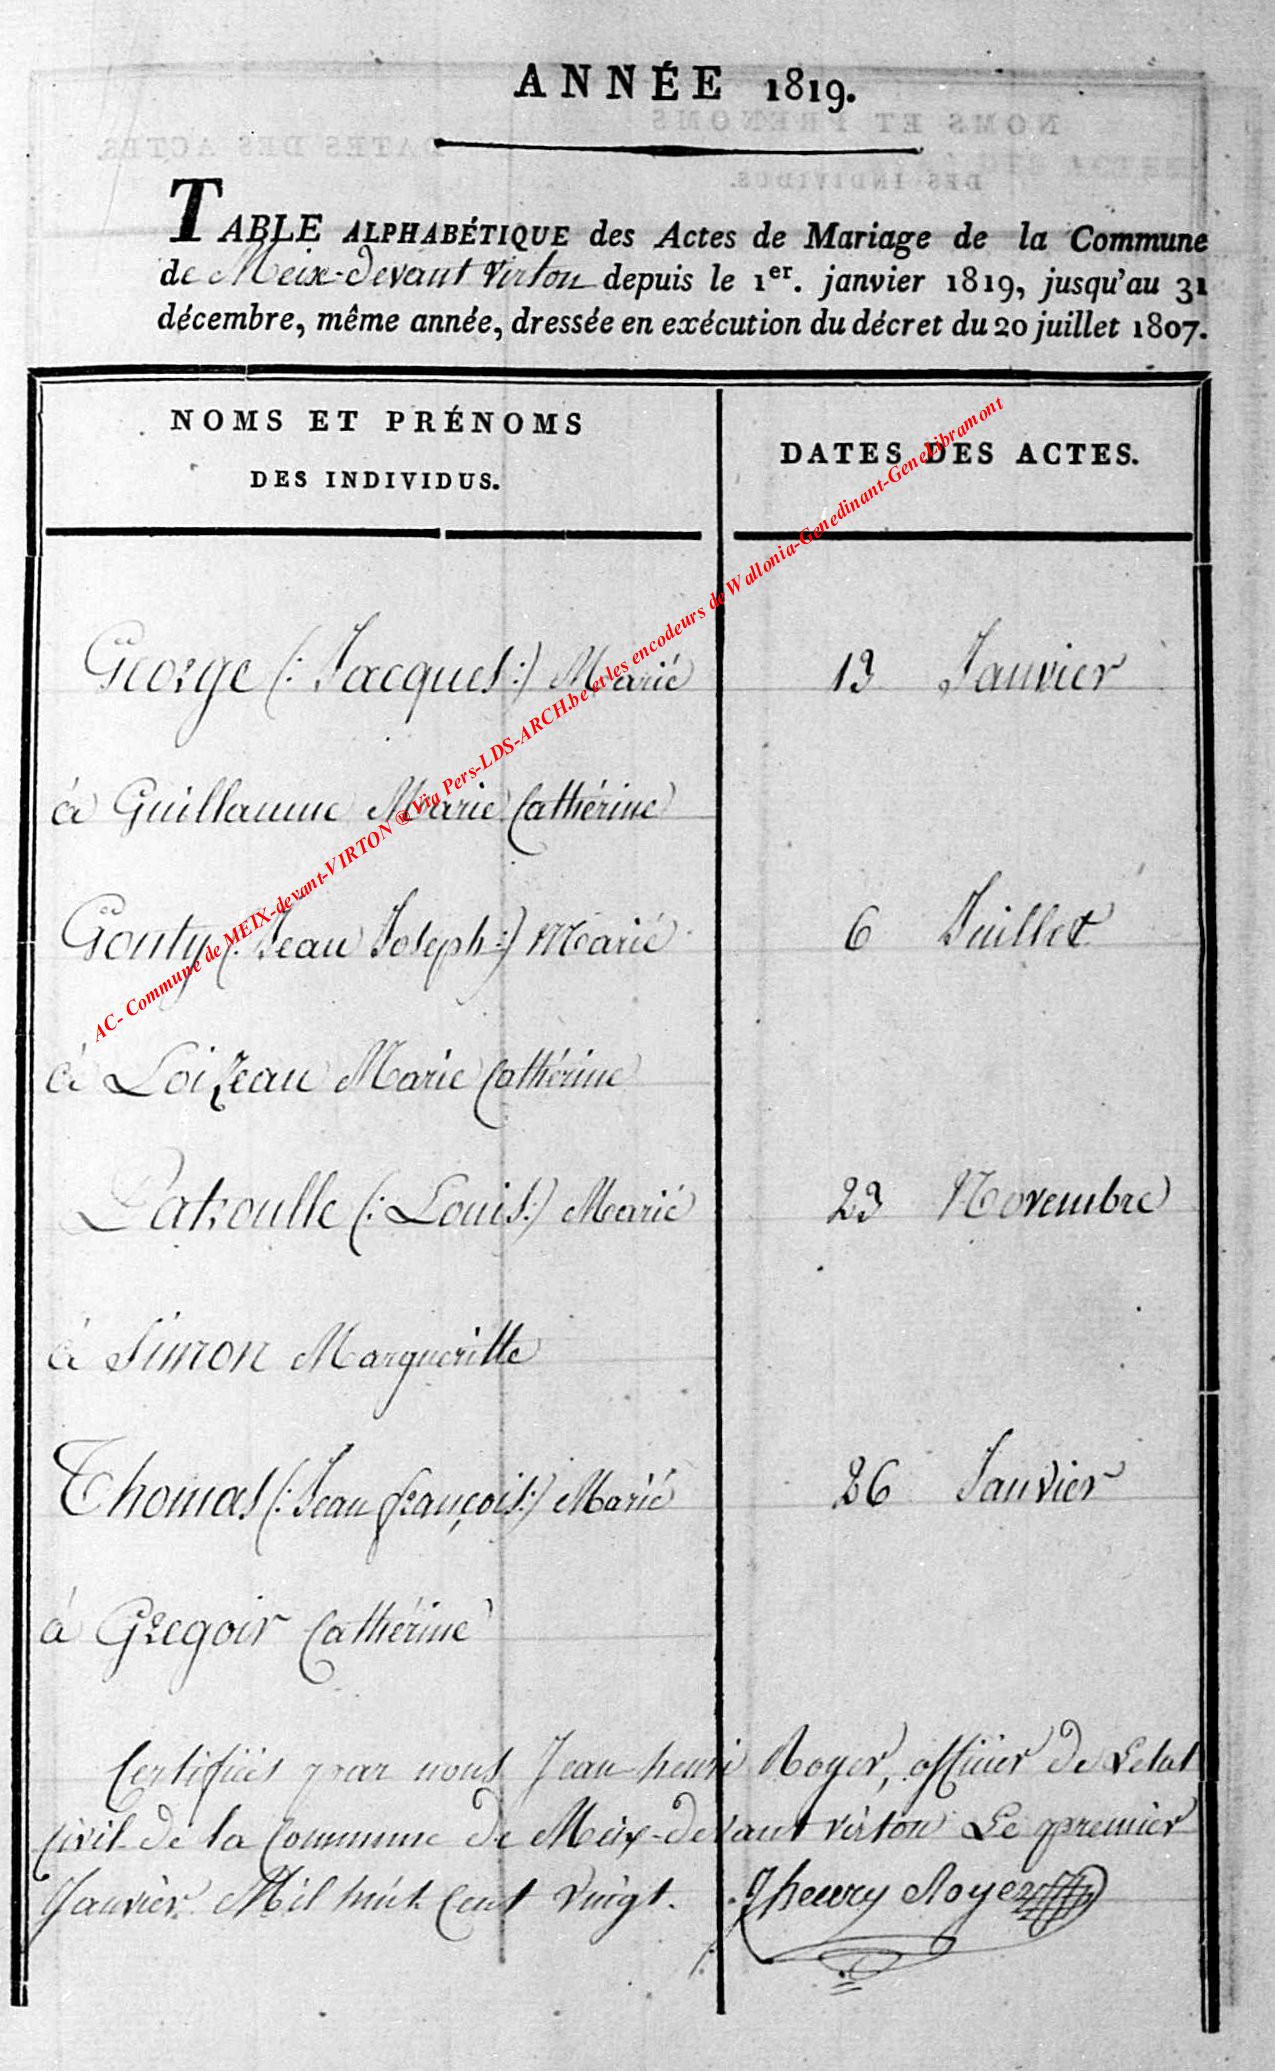 ANNÉE 1819.
TABLE ALPHABÉTIQUE des Actes de Mariage de la Commune
de Meix-devant Virton depuis le 1er. janvier 1819, jusqu'au 31
décembre, même année, dressée en exécution du décret du 20 juillet 1807.
NOMS ET PRÉNOMS
DES INDIVIDUS.
DATES DES ACTES.
George (: Jacques :) Marié 13 Janvier
à Guillaume Marie Cathérine
Gonty (: Jean Joseph :) Marié 6 Juillet
à Loizeau Marie Cathérine
Latroulle (: Louis :) Marié 23 Novembre
à Simon Margueritte
Thomas (: Jean françois :) Marié 26 Janvier
à Gregoir Cathérine
Certifiés par nous Jean henri Royer, officier de Letat
Civil de la Commune de Meix-devant virton Le premier
Janvier Mil huit Cent vingt. Jhenry Royer
AC- Commune de MEIX-devant-VIRTON ® Via Pers-LDS-ARCH.be et les encodeurs de Wallonia-Genedinant-GeneLibramont